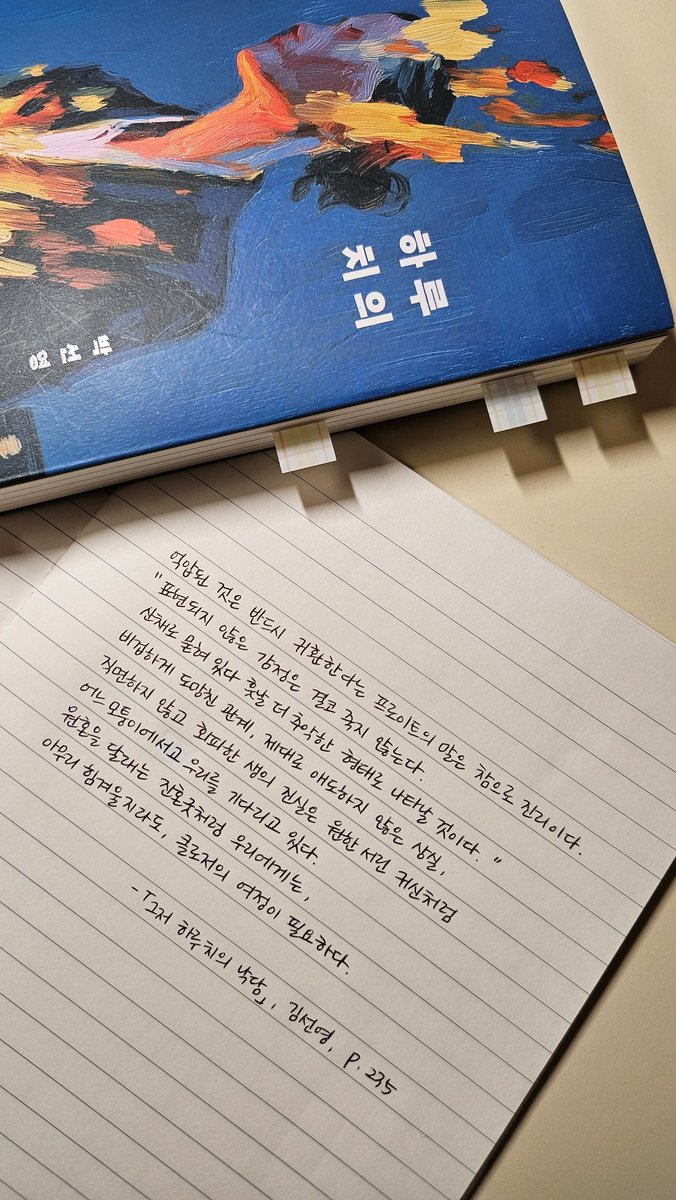 하루
치의
억압된 것은 반드시 귀환한다는 프로이트의 말은 참으로 진리이다.
"표현되지 않은 감정은 결코 죽지 않는다.
산채로 묻혀 있다 훗날 더 추악한 형태로 나타날 것이다."
비겁하게 도망친 관계, 제대로 애도하지 않은 상실,
직면하지 않고 회피한 생의 진실은 원한 서린 귀신처럼
어느 모퉁이에서고 우리를 기다리고 있다.
원혼을 달래는 진혼굿처럼 우리에게는,
아무리 힘겨울지라도, 클로저의 여정이 필요하다.
-「그저 하루치의 낙담」, 김선영, p.235